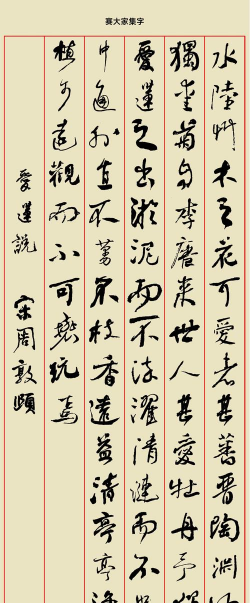 赛大家集字
水陸艸木之花可愛者甚蕃晋陶淵
獨愛菊自李唐来世人甚愛牡丹予
愛蓮之出淤泥而不染濯清漣而不
中通外直不蔓不枝香遠益清亭亭
植可遠觀而不可褻玩焉
愛蓮説 宋周敦頤